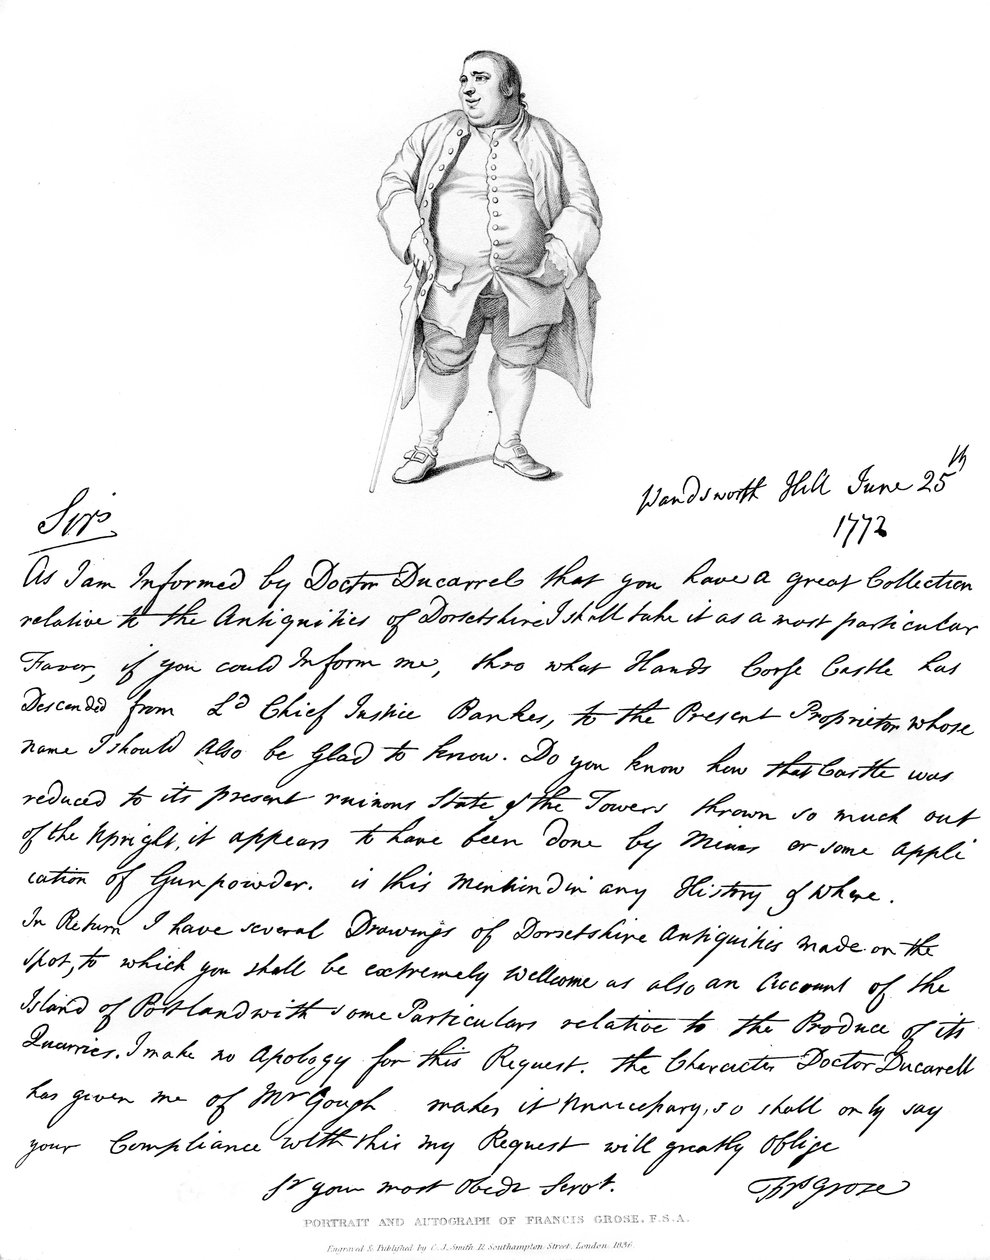 Wandsworth Hill June 25th
1772
Sir,
As I am Informed by Doctor Ducarrel that you have a great Collection
relative to the Antiquities of Dorsetshire I shall take it as a most particular
Favor, if you could Inform me, thro what Hands Corfe Castle has
Descended from Ld Chief Justice Bankes, to the Present Proprietor whose
name I should also be Glad to know. Do you know how that Castle was
reduced to its present ruinous State & the Towers thrown so much out
of the Upright, it appears to have been done by Mines or some appli
cation of Gunpowder. is this Mentiond in any History & where.
In Return I have several Drawings of Dorsetshire Antiquities made on the
Spot, to which you shall be extremely wellcome as also an Account of the
Island of Portland with some Particulars relative to the Produce of its
Quarries. I make no Apology for this Request. the Character Doctor Ducarell
has given me of Mr Gough makes it Unnecessary, so shall only say
your Compliance with this my Request will greatly Oblige
Sr your most Obedt Servt.
Frs Grose
PORTRAIT AND AUTOGRAPH OF FRANCIS GROSE, F.S.A.
Engraved & Published by C. J. Smith Southampton Street, London, 1836.